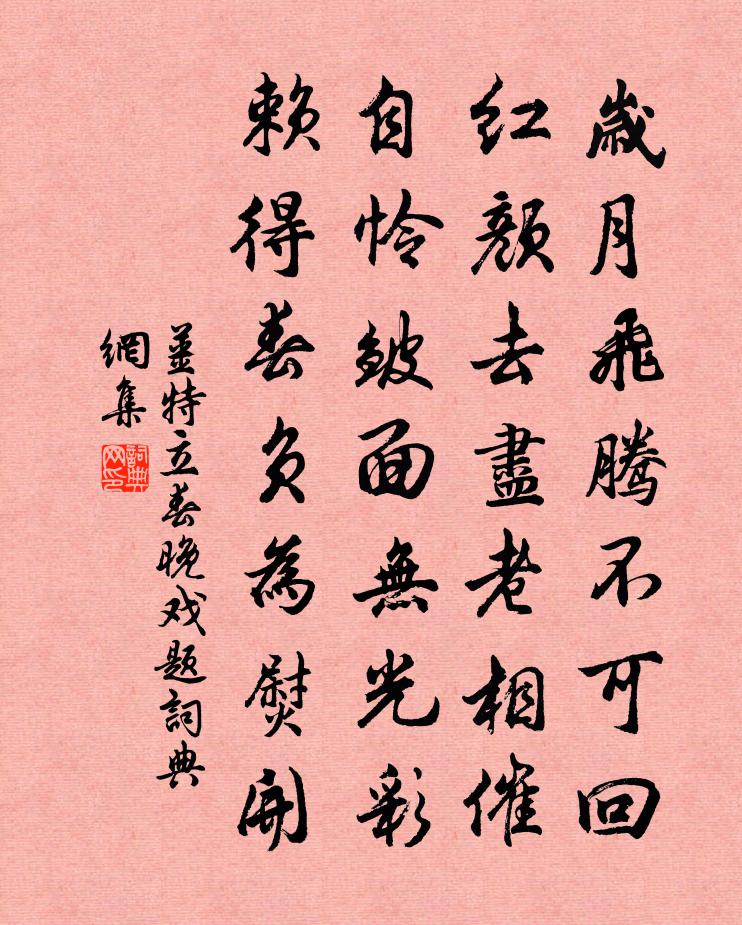 歲月飛騰不可回
紅顏去盡老相催
自怜皴面無光彩
賴得春負為熨開
姜特立春晚戏题詞典
網集
詞典
网印